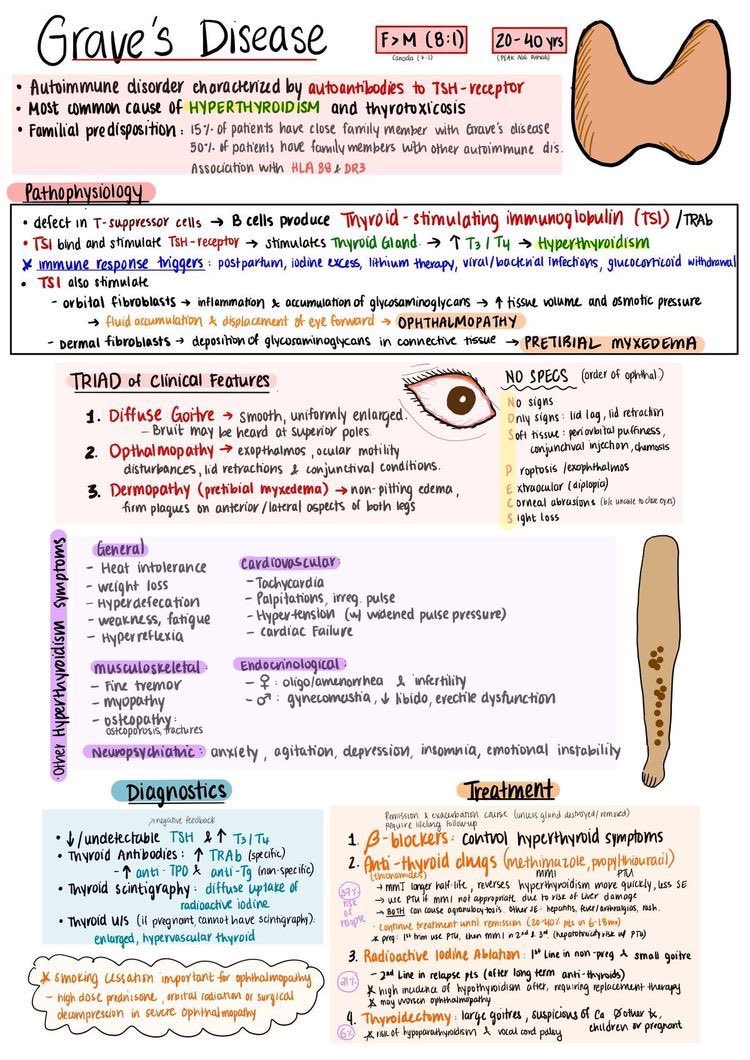 Grave's Disease
F>M (8:1)
Canada (7:1)
20-40 yrs
(PEAK AGE RANGE)
• Autoimmune disorder characterized by autoantibodies to TSH-receptor
• Most common cause of HYPERTHYROIDISM and thyrotoxicosis
• Familial predisposition: 15% of patients have close family member with Grave's disease
50% of patients have family members with other autoimmune dis.
Association with HLA B8 & DR3
Pathophysiology
• defect in T-suppressor cells → B cells produce Thyroid-stimulating immunoglobulin (TSI) /TRAb
• TSI bind and stimulate TSH-receptor → stimulates Thyroid Gland → ↑ T3/T4 → Hyperthyroidism
* immune response triggers: postpartum, iodine excess, lithium therapy, viral/bacterial infections, glucocorticoid withdrawal
• TSI also stimulate
- orbital fibroblasts → inflammation & accumulation of glycosaminoglycans → ↑ tissue volume and osmotic pressure
→ fluid accumulation & displacement of eye forward → OPHTHALMOPATHY
- dermal fibroblasts → deposition of glycosaminoglycans in connective tissue → PRETIBIAL MYXEDEMA
TRIAD of Clinical Features
1. Diffuse Goitre → smooth, uniformly enlarged.
- Bruit may be heard at superior poles.
2. Opthalmopathy → exopthalmos, ocular motility
disturbances, lid retractions & conjunctival conditions.
3. Dermopathy (pretibial myxedema) → non-pitting edema,
firm plaques on anterior/lateral aspects of both legs
NO SPECS (order of ophthal.)
No signs
Only signs: lid lag, lid retraction
Soft tissue: periorbital puffiness,
conjunctival injection, chemosis
Proptosis/exophthalmos
Extraocular (diplopia)
Corneal abrasions (b/c unable to close eyes)
Sight loss
Other Hyperthyroidism Symptoms
General
- Heat intolerance
- weight loss
- Hyperdefecation
- weakness, fatigue
- Hyperreflexia
Cardiovascular:
- Tachycardia
- Palpitations, irreg. pulse
- Hypertension (w/ widened pulse pressure)
- Cardiac Failure
musculoskeletal:
- Fine tremor
- myopathy
- osteopathy:
osteoporosis, fractures
Endocrinological:
- ♀: oligo/amenorrhea & infertility
- ♂: gynecomastia, ↓ libido, erectile dysfunction
Neuropsychiatric: anxiety, agitation, depression, insomnia, emotional instability
Diagnostics
negative feedback
• ↓/undetectable TSH & ↑ T3/T4
• Thyroid Antibodies: ↑ TRAb (specific)
- ↑ anti-TPO & anti-Tg (non-specific)
• Thyroid scintigraphy: diffuse uptake of
radioactive iodine
• Thyroid u/s (if pregnant, cannot have scintigraphy):
enlarged, hypervascular thyroid
* smoking cessation important for ophthalmopathy
- high dose prednisone, orbital radiation or surgical
decompression in severe ophthalmopathy
Treatment
Remission & exacerbation course (unless gland destroyed/removed)
Require lifelong follow-up
1. β-blockers: control hyperthyroid symptoms
2. Anti-thyroid drugs (methimazole, propylthiouracil)
(thionamides) MMI PTU
37% risk of relapse
→ MMI longer half-life, reverses hyperthyroidism more quickly, less SE
→ use PTU if MMI not appropriate due to risk of liver damage
→ BOTH can cause agranulocytosis. Other SE: hepatitis, fever/arthralgias, rash.
• continue treatment until remission (20-40% pts in 6-18mo)
* preg: 1st trim use PTU, then MMI in 2nd & 3rd. (hepatotoxicity risk w/ PTU)
3. Radioactive Iodine Ablation: 1st Line in non-preg & small goitre
21%
- 2nd Line in relapse pts (after long term anti-thyroids)
* high incidence of hypothyroidism after, requiring replacement therapy
* may worsen ophthalmopathy
4. Thyroidectomy: large goitres, suspicions of Ca Ø other tx,
children or pregnant
6%
* risk of hypoparathyroidism & vocal cord palsy